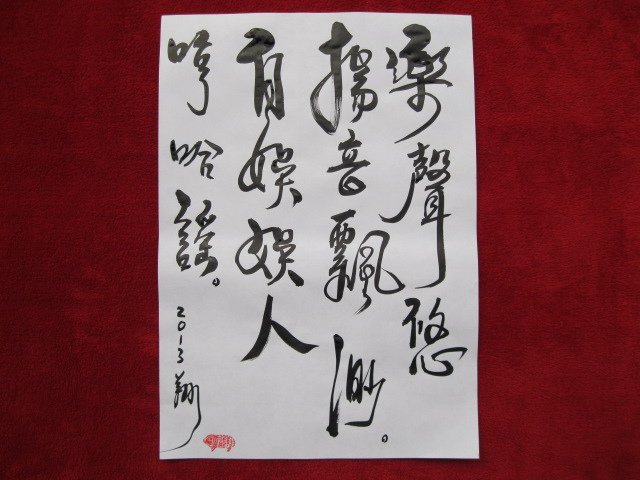 樂聲悠
揚音飄渺。
自娛娛人
哼哈謠。
2013翔